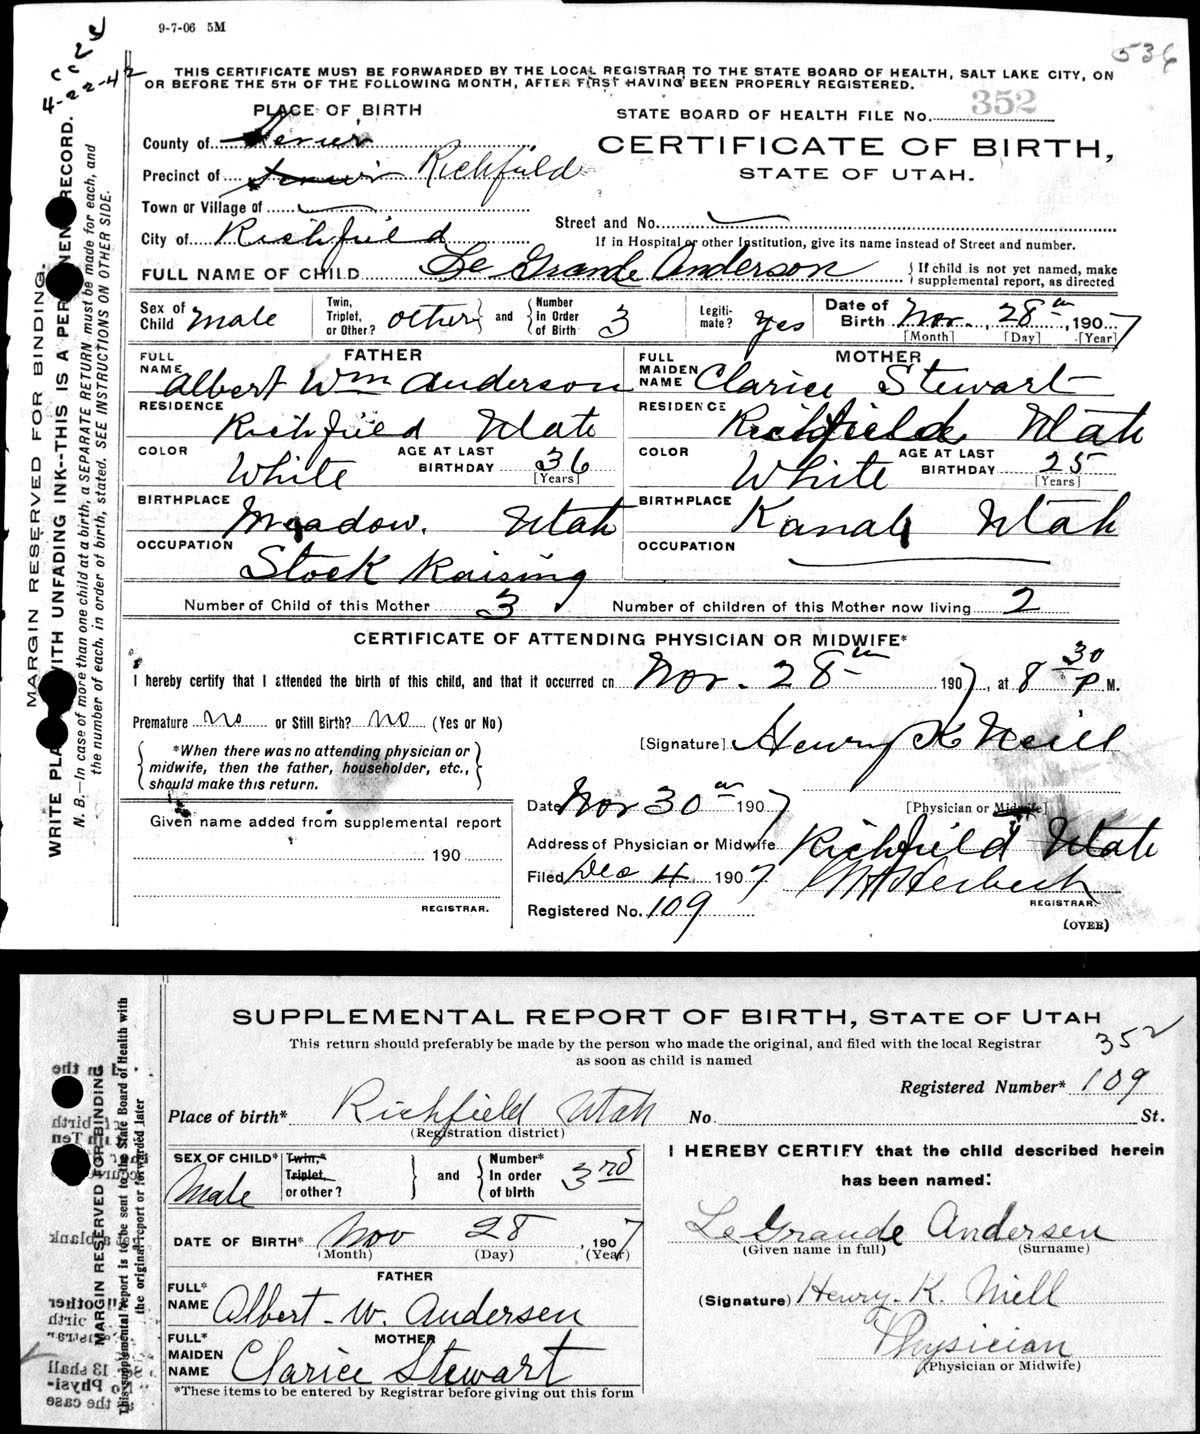 9-7-06 5M
536
cc 2 d
4-22-42
THIS CERTIFICATE MUST BE FORWARDED BY THE LOCAL REGISTRAR TO THE STATE BOARD OF HEALTH, SALT LAKE CITY, ON
OR BEFORE THE 5TH OF THE FOLLOWING MONTH, AFTER FIRST HAVING BEEN PROPERLY REGISTERED.
MARGIN RESERVED FOR BINDING.
WRITE PLA WITH UNFADING INK--THIS IS A PER NEN RECORD.
N. B.—In case of more than one child at a birth, a SEPARATE RETURN must be made for each, and
the number of each, in order of birth, stated. SEE INSTRUCTIONS ON OTHER SIDE.
PLACE OF BIRTH
STATE BOARD OF HEALTH FILE No. 352
County of Sevier
CERTIFICATE OF BIRTH,
Precinct of Sevier Richfield
STATE OF UTAH.
Town or Village of
Street and No.
City of Richfield
If in Hospital or other Institution, give its name instead of Street and number.
FULL NAME OF CHILD Le Grande Anderson { If child is not yet named, make supplemental report, as directed
Sex of Child Male Twin, Triplet, or Other? other } and { Number In Order of Birth 3 Legiti-mate? Yes Date of Birth Nov. 28th, 1907
[Month] [Day] [Year]
FATHER MOTHER
FULL NAME Albert Wm Anderson FULL MAIDEN NAME Clarice Stewart
RESIDENCE Richfield Utah RESIDENCE Richfield Utah
COLOR White AGE AT LAST BIRTHDAY 36 [Years] COLOR White AGE AT LAST BIRTHDAY 25 [Years]
BIRTHPLACE Meadow. Utah BIRTHPLACE Kanab Utah
OCCUPATION Stock Raising OCCUPATION
Number of Child of this Mother 3 Number of children of this Mother now living 2
CERTIFICATE OF ATTENDING PHYSICIAN OR MIDWIFE*
I hereby certify that I attended the birth of this child, and that it occurred on Nov. 28th 1907, at 8 30 P M.
Premature no or Still Birth? no (Yes or No)
[Signature] Henry K Neill
{ *When there was no attending physician or
midwife, then the father, householder, etc.,
should make this return. }
Date Nov 30th 1907 [Physician or Midwife]
Given name added from supplemental report
Address of Physician or Midwife Richfield Utah
190
Filed Dec 4 1907
REGISTRAR.
REGISTRAR.
Registered No. 109
(OVER)
SUPPLEMENTAL REPORT OF BIRTH, STATE OF UTAH
This return should preferably be made by the person who made the original, and filed with the local Registrar
as soon as child is named
352
Registered Number* 109
MARGIN RESERVED FOR BINDING
This supplemental report is to be sent to the State Board of Health with
the original report or forwarded later
Place of birth* Richfield Utah No. St.
(Registration district)
SEX OF CHILD* Male Twin,* Triplet, or other? } and { Number* In order of birth 3rd
I HEREBY CERTIFY that the child described herein
has been named:
DATE OF BIRTH* Nov 28, 1907
(Month) (Day) (Year)
LeGrande Andersen
(Given name in full) (Surname)
FATHER
FULL* NAME Albert W. Andersen
(Signature) Henry K. Niell
MOTHER
FULL* MAIDEN NAME Clarice Stewart
Physician
(Physician or Midwife)
*These items to be entered by Registrar before giving out this form